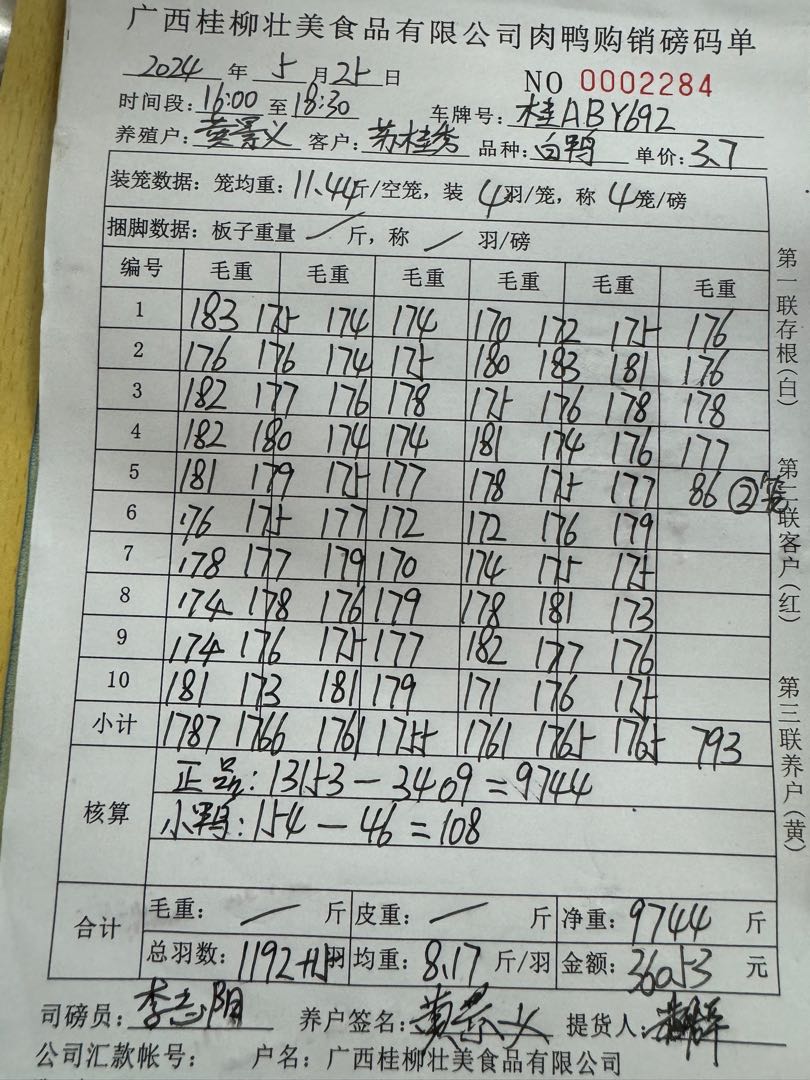 广西桂柳壮美食品有限公司肉鸭购销磅码单
2024 年 5 月 25 日 NO 0002284
时间段: 16:00 至 18:30 车牌号: 桂ABY692
养殖户: 黄景义 客户: 苏桂秀 品种: 白鸭 单价: 3.7
装笼数据: 笼均重: 11.44斤/空笼, 装 4羽/笼, 称 4笼/磅
捆脚数据: 板子重量 / 斤, 称 / 羽/磅
编号 毛重 毛重 毛重 毛重 毛重 毛重
1 183 175 174 174 170 172 175 176
2 176 176 174 175 180 183 181 176
3 182 177 176 178 175 176 178 178
4 182 180 174 174 181 174 176 177
5 181 179 175 177 178 175 177 86 ②笼
6 176 175 177 172 172 176 179
7 178 177 179 170 174 175 175
8 174 178 176 179 178 181 173
9 174 176 175 177 182 177 176
10 181 173 181 179 171 176 175
小计 1787 1766 1761 1755 1761 1765 1765 793
核算 正品: 13153 - 3409 = 9744
小鸭: 154 - 46 = 108
合计 毛重: / 斤 皮重: / 斤 净重: 9744 斤
总羽数: 1192+15羽 均重: 8.17 斤/羽 金额: 36053 元
司磅员: 李志阳 养户签名: 黄景义 提货人:
公司汇款帐号: 户名: 广西桂柳壮美食品有限公司
第一联存根(白) 第二联客户(红) 第三联养户(黄)